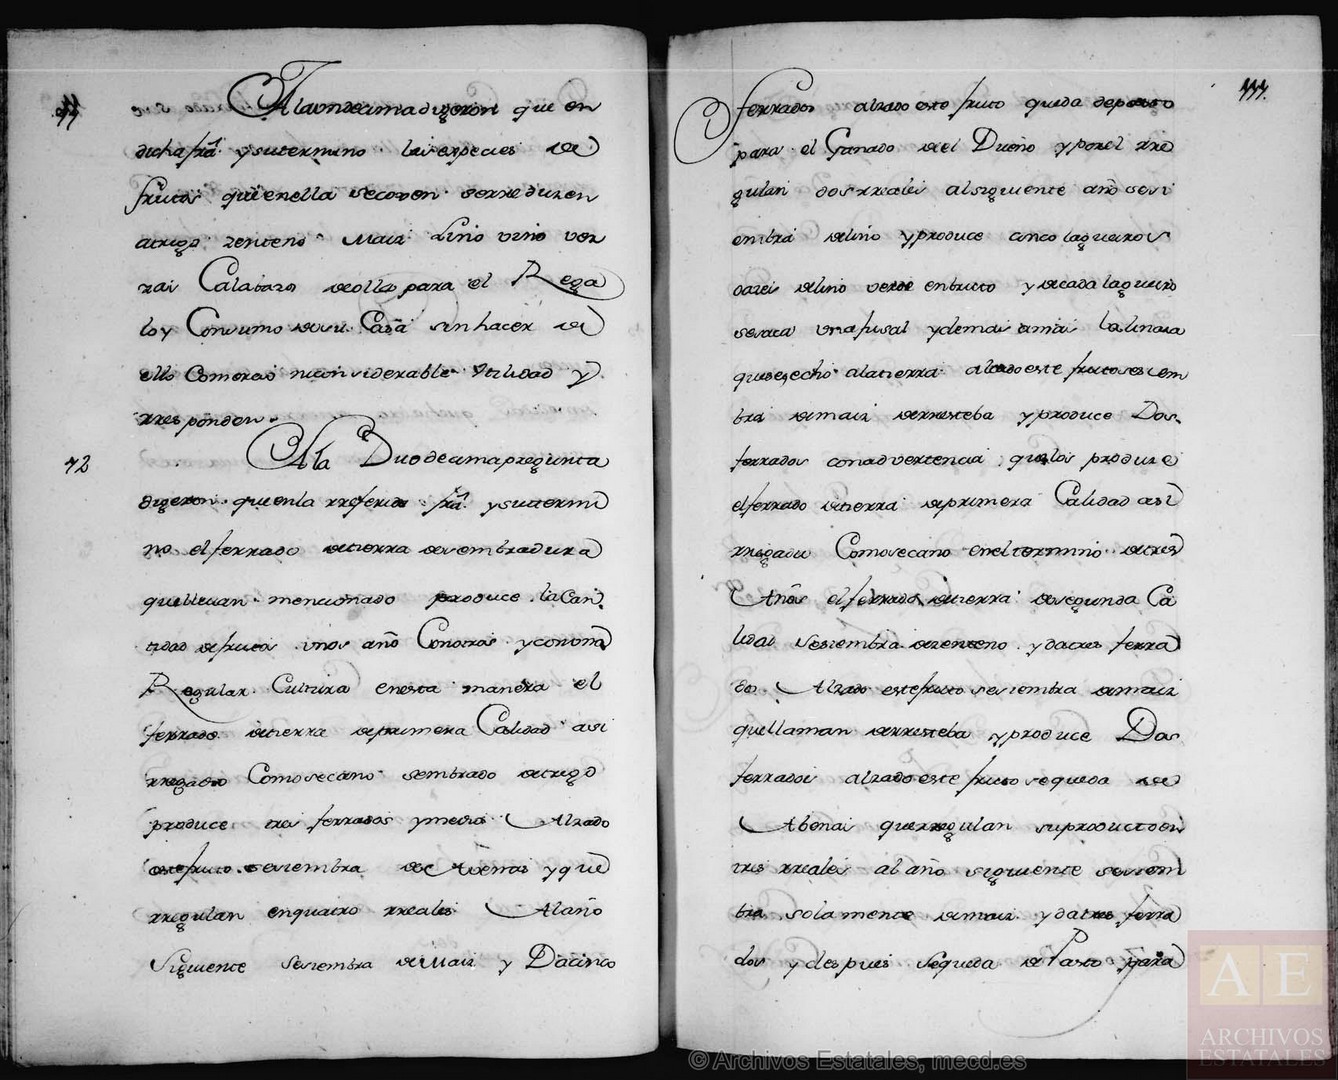 11
A la onzeama digeron que en
dicha frã y su termino las especies de
frutos que en ella se cojen se rreduzen
a trigo zenteno Maiz Lino vino ver
zas Calabazo de olla para el Rega
lo y Consumo de su Casa sin hacer de
ello Comercio ni considerable Utilidad y
rresponden
12
A la Duodecima pregunta
digeron que en la rreferida frã y su termi
no el ferrado de tierra de sembradura
que llevan mencionado produce la Can
tidad de frutos unos año Con otros y con una
Regular Cultura en esta manera el
ferrado de tierra de primera Calidad asi
rregadio Como secano sembrado de trigo
produce tres ferrados y medio Alzado
este fruto se siembra de Abenas y que
rregulan en quatro rreales Al año
Siguiente se siembra de Maiz y Da cinco
ferrados alzado esto fruto queda de pasto
para el Ganado del Dueño y por el rre
gulan dos rreales al siguiente año se si
embra de lino y produce cinco lagueiros
o azes de lino verde en bruto y de cada lagueiro
se saca un afusal y demas a mas la linaza
que se echo a la tierra alzado este fruto se siem
bra de maiz de rresteba y produce Dos
ferrados con advertencia que los produze
el ferrado de tierra de primera Calidad asi
rregadio Como secano en el termino de tres
Años el ferrado de tierra de segunda Ca
lidad se siembra de zenteno y da tres ferra
dos Alzado este fruto se siembra de maiz
que llaman de rresteba y produce Dos
ferrados alzado este fruto se queda de
Abenas que rregulan su producto en
tres rreales al año siguiente se siem
bra solamente de maiz y da tres ferra
dos y despues se queda de Pasto para
© Archivos Estatales, mecd.es
AE
ARCHIVOS
ESTATALES